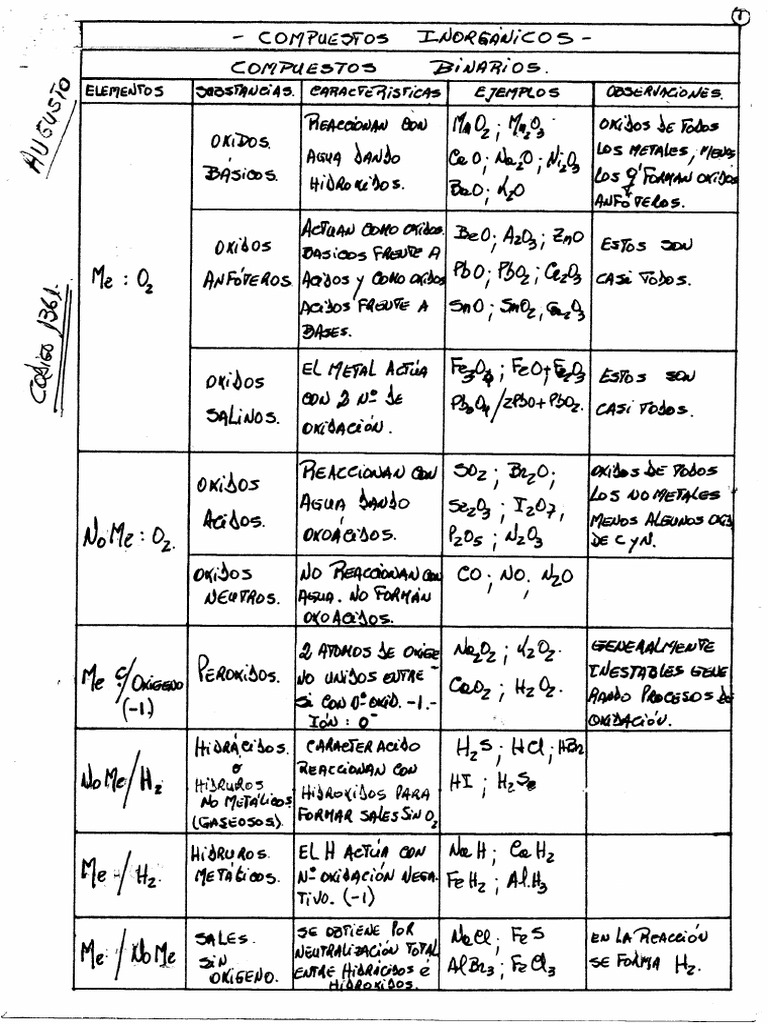 1
- COMPUESTOS INORGÁNICOS -
COMPUESTOS BINARIOS.
AUGUSTO
CODIGO 1361.
ELEMENTOS SUBSTANCIAS. CARACTERISTICAS EJEMPLOS OBSERVACIONES.
Me : O2
OXIDOS.
BÁSICOS.
REACCIONAN CON
AGUA DANDO
HIDROXIDOS.
MnO2 ; Mn2O3
CaO ; Na2O ; Ni2O3
BaO ; K2O
OXIDOS DE TODOS
LOS METALES, MENOS
LOS Q' FORMAN OXIDOS
ANFÓTEROS.
OXIDOS
ANFÓTEROS.
ACTUAN COMO OXIDOS.
BASICOS FRENTE A
ACIDOS Y COMO OXIDOS
ACIDOS FRENTE A
BASES.
BeO ; A2O3 ; ZnO
PbO ; PbO2 ; Ce2O3
SnO ; SnO2 ; Ga2O3
ESTOS SON
CASI TODOS.
OXIDOS
SALINOS.
EL METAL ACTÚA
CON 2 Nº DE
OXIDACIÓN.
Fe3O4 ; FeO+Fe2O3
Pb3O4 / 2PbO+PbO2.
ESTOS SON
CASI TODOS.
NoMe : O2.
OXIDOS
ACIDOS.
REACCIONAN CON
AGUA DANDO
OXOÁCIDOS.
SO2 ; Br2O ;
Se2O3 ; I2O7 ;
P2O5 ; N2O3
OXIDOS DE TODOS
LOS NO METALES
MENOS ALGUNOS OXID
DE C Y N.
OXIDOS
NEUTROS.
NO REACCIONAN CON
AGUA. NO FORMAN
OXOACIDOS.
CO ; NO ; N2O
Me c/OXIGENO
(-1)
PEROXIDOS.
2 ATOMOS DE OXIGE
NO UNIDOS ENTRE
SI CON Nº OXID. -1.-
IÓN : O-
Na2O2 ; K2O2.
CaO2 ; H2O2.
GENERALMENTE
INESTABLES GENE
RANDO PROCESOS DE
OXIDACIÓN.
NoMe/H2
HIDRÁCIDOS.
o
HIDRUROS
NO METÁLICOS
(GASEOSOS).
CARACTER ACIDO
REACCIONAN CON
HIDROXIDOS PARA
FORMAR SALES SIN O2
H2S ; HCl ; HBr
HI ; H2Se
Me / H2.
HIDRUROS.
METÁLICOS.
EL H ACTÚA CON
Nº OXIDACIÓN NEGA-
TIVO. (-1)
NaH ; CaH2
FeH2 ; AlH3
Me / NoMe
SALES.
SIN
OXIGENO.
SE OBTIENE POR
NEUTRALIZACIÓN TOTAL
ENTRE HIDRÁCIDOS é
HIDROXIDOS.
NaCl ; FeS
AlBr3 ; FeCl3
EN LA REACCIÓN
SE FORMA H2.